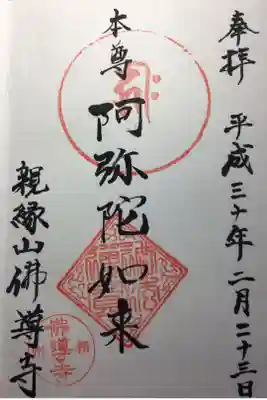 奉拝 平成三十年二月二十三日
本尊 阿弥陀如来
親縁山佛尊寺